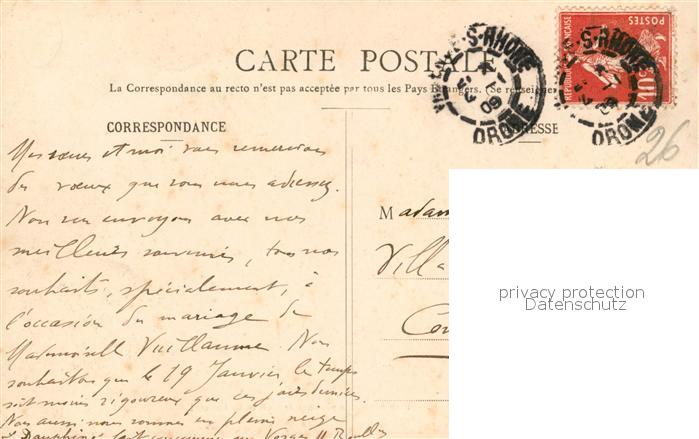 CARTE POSTALE
La Correspondance au recto n'est pas acceptée par tous les Pays Etrangers. (Se renseigner
CORRESPONDANCE
ADRESSE
S-RHONE
DROME
09
S-RHONE
DROME
REPUBLIQUE FRANÇAISE
POSTES
10
26
Mes sœurs et moi vous remercions
des vœux que vous nous adressez.
Nous vous envoyons avec nos
meilleurs souvenirs, tous nos
souhaits, spécialement, à
l'occasion du mariage de
Mademoiselle Vuillaume. Nous
souhaitons que le 19 Janvier le temps
soit moins rigoureux que ces jours derniers.
Nous aussi nous sommes en pleine neige
Dauphiné tout comme Vosges
Madam
Villa
Co
privacy protection
Datenschutz